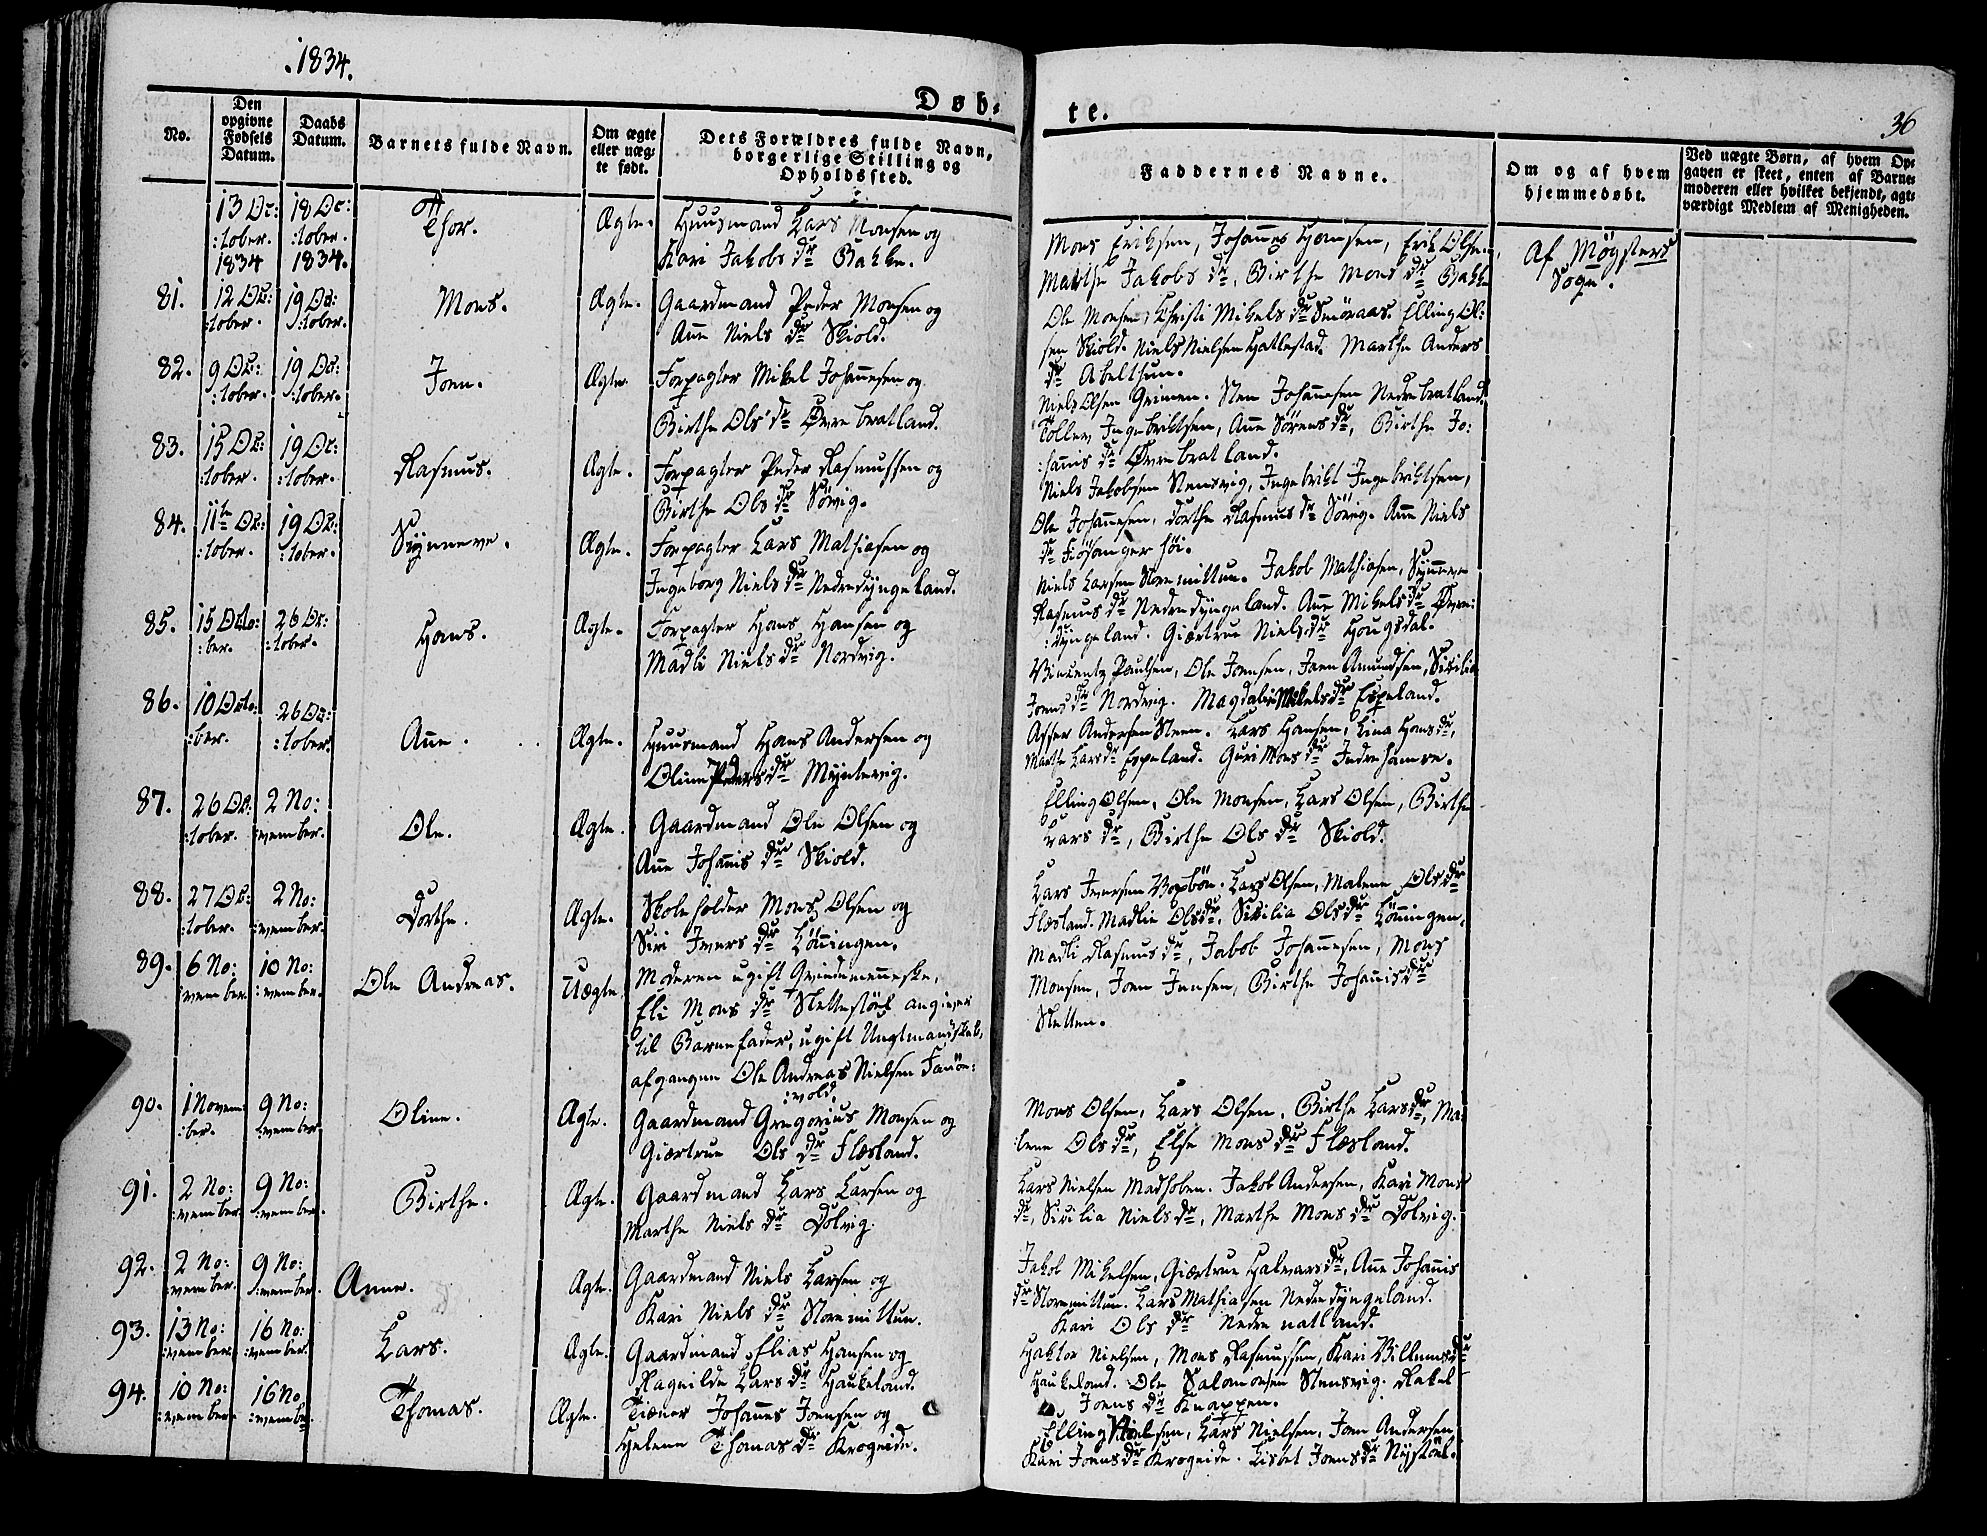 1834.
Døb-
te.
36
No.
Den opgivne Fødsels Datum.
Daabs Datum.
Barnets fulde Navn.
Om ægte eller uægte født.
Dets Forældres fulde Navn, borgerlige Stilling og Opholdssted.
Faddernes Navne.
Om og af hvem hjemmedøbt.
Ved uægte Børn, af hvem Opgaven er skeet, enten af Barnemoderen eller hvilket bekjendt, agtværdigt Medlem af Menigheden.
13 Oc:
:tober.
1834
18 Oc:
:tober.
1834.
Thor.
Ægte.
Huusmand Lars Monsen og
Kari Jakobs dr Bakke.
Mons Eriksen, Johannes Hansen, Erik Olsen,
Marthe Jakobs dr, Birthe Mons dr Bakke
Af Møgsters
Sogn.
81.
12 Oc:
:tober.
19 Oc:
:tober.
Mons.
Ægte.
Gaardmand Peder Monsen og
Anne Niels dr Skiold.
Ole Monsen, Christi Mikels dr Smöraas. Elling Ol:
sen Skiold. Niels Nielsen Hatlestad. Marthe Anders
dr Abelthun.
82.
9 Oc:
:tober.
19 Oc:
:tober.
Joen.
Ægte.
Forpagter Mikel Johannesen og
Birthe Ols dr Øvrebratland.
Niels Olsen Grimen. Sten Johannesen Nedrebratland.
Tollev Ingebriktsen, Anne Sörens dr, Birthe Jo:
:hannis dr Øvrebratland.
83.
15 Oc:
:tober.
19 Oc:
:tober.
Rasmus.
Ægte.
Forpagter Peder Rasmussen og
Birthe Ols dr Sövig.
Niels Jakobsen Stensvig, Ingebrikt Ingebriktsen,
Ole Johannesen, Dorthe Rasmus dr Sövig. Anne Niels
dr Fiösangerhöi.
84.
11te Oc:
:tober.
19 Oc:
:tober.
Synneve.
Ægte.
Forpagter Lars Mathiasen og
Ingeborg Niels dr Nedredyngeland.
Niels Larsen Storemittun. Jakob Mathiasen, Synneve
Rasmus dr Nedredyngeland. Anne Mikels dr Øvre:
:dyngeland. Giærtrue Niels dr Hougsdal.
85.
15 Octo:
:ber.
26 Oc:
:tober.
Hans.
Ægte.
Forpagter Hans Hansen og
Madli Niels dr Nordvig.
Vincentz Paulsen, Ole Joensen, Joen Amundsen, Sicilia
Joens dr Nordvig. Magdali Mikels dr Espeland.
86.
10 Octo:
:ber.
26 Oc:
:tober.
Anne.
Ægte.
Huusmand Hans Andersen og
Oline Peders dr Myntevig.
Asser Andersen Steen. Lars Hansen, Lina Hans dr,
Marthe Lars dr Espeland. Guri Mons dr Indrehamre.
87.
26 Oc:
:tober.
2 No:
:vember.
Ole.
Ægte.
Gaardmand Ole Olsen og
Anne Johannis dr Skiold.
Elling Olsen, Ole Monsen, Lars Olsen, Birthe
Lars dr, Birthe Ols dr Skiold.
88.
27 Oc:
:tober.
2 No:
:vember.
Dorthe.
Ægte.
Skoleholder Mons Olsen og
Siri Ivers dr Lönningen.
Lars Iversen. Lars Olsen, Malene Ols dr
Flæsland. Madlie Ols dr, Sicilia Ols dr Lönningen.
89.
6 No:
:vember.
10 No:
:vember.
Ole Andreas.
Uægte.
Moderen ugift Qvindemenneske,
Eli Mons dr Slettestöel angiver
til Barnefader, ugift Ungtmandskab,
afgangne Ole Andreas Nielsen Fanöe:
:vold.
Madli Rasmus dr, Jakob Johannesen, Mons
Monsen, Joen Jensen, Birthe Johannis dr
Sletten.
90.
1 Novem:
:ber.
9 No:
:vember
Oline.
Ægte.
Gaardmand Gregorius Monsen og
Giærtrue Ols dr Flæsland.
Mons Olsen, Lars Olsen, Birthe Lars dr, Ma:
:lene Ols dr, Else Mons dr Flæsland.
91.
2 No:
:vember
9 No:
:vember.
Birthe.
Ægte.
Gaardmand Lars Larsen og
Marthe Niels dr Dolvig.
Lars Nielsen Madhoben. Jakob Andersen, Kari Mons
dr, Sicilia Niels dr, Marthe Mons dr Dolvig.
92.
2 No:
:vember.
9 No:
:vember.
Anne.
Ægte.
Gaardmand Niels Larsen og
Kari Niels dr Storemittun.
Jakob Mikelsen, Giærtrue Halvars dr, Anne Johannis
dr Storemittun. Lars Mathiasen Nedredyngeland.
Kari Ols dr Nedrenatland.
93.
13 No:
:vember.
16 No:
:vember.
Lars.
Ægte.
Gaardmand Elias Hansen og
Ragnilde Lars dr Haukeland.
Haktor Nielsen, Mons Rasmussen, Kari Villums dr
Haukeland. Ole Salamonsen Stensvig. Rakel
Joens dr Knappen.
94.
10 No:
:vember.
16 No
:vember.
Thomas.
Ægte.
Tiener Johannes Joensen og
Helene Thomas dr Krogeide.
Elling Nielsen, Lars Nielsen, Joen Andersen
Kari Joens dr Krogeide. Lisbet Joens dr Nystöel.